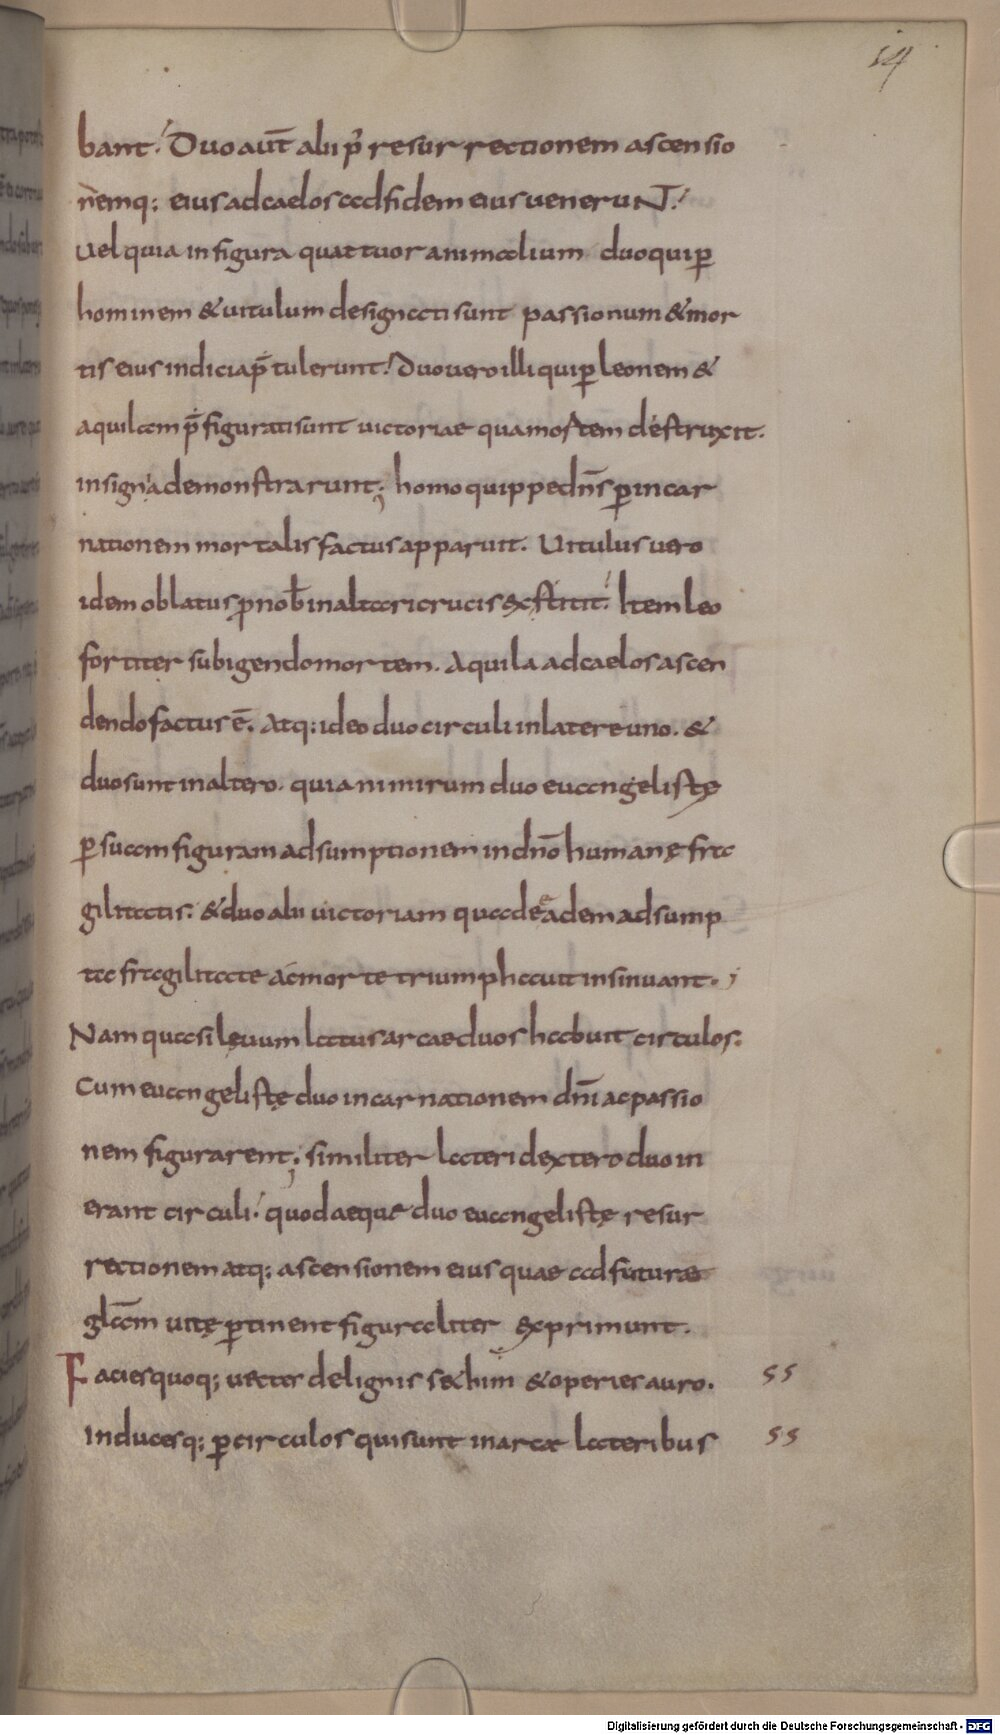 14
bant. Duo aut̄ alii p̄ resurrectionem ascensio
nemq; eius ad caelos ad fidem eius venerunt.
Uel quia in figura quattuor animalium duo qui ꝑ
hominem & uitulum designati sunt passionum & mor
tis eius indicia p̄ tulerunt. Duo vero illi qui ꝑ leonem &
aquilam p̄ figurati sunt victoriae qua mortem destruxit.
insignia demonstrarunt; homo quippe dn̄s ꝑ incar
nationem mortalis factus apparuit. Vitulus vero
idem oblatus ꝓ nob̄ in altari crucis exstitit. Item leo
fortiter subigendo mortem. Aquila ad caelos ascen
dendo factus ē. Atq; ideo duo circuli in latere uno. &
duo sunt in altero. quia nimirum duo euangelistę
ꝑ suam figuram adsumptionem in dn̄o humanę fra
gilitatis. & duo alii victoriam qua de eadem adsump
ta fragilitate ac morte triumphauit insinuant.;
Nam quasi lęuum latus arcae duos habuit circulos.
Cum euangelistę duo incarnationem dn̄i ac passio
nem figurarent; similiter lateri dextero duo in
erant circuli. quod aeque duo euangelistę resur
rectionem atq; ascensionem eius quae ad futurae
gl̄am uitę ꝑtinent figuraliter exprimunt.
Facies quoq; uectes de lignis sethim & operies auro. ss
Inducesq; ꝑ circulos qui sunt in arcae lateribus ss
Digitalisierung gefördert durch die Deutsche Forschungsgemeinschaft - DFG